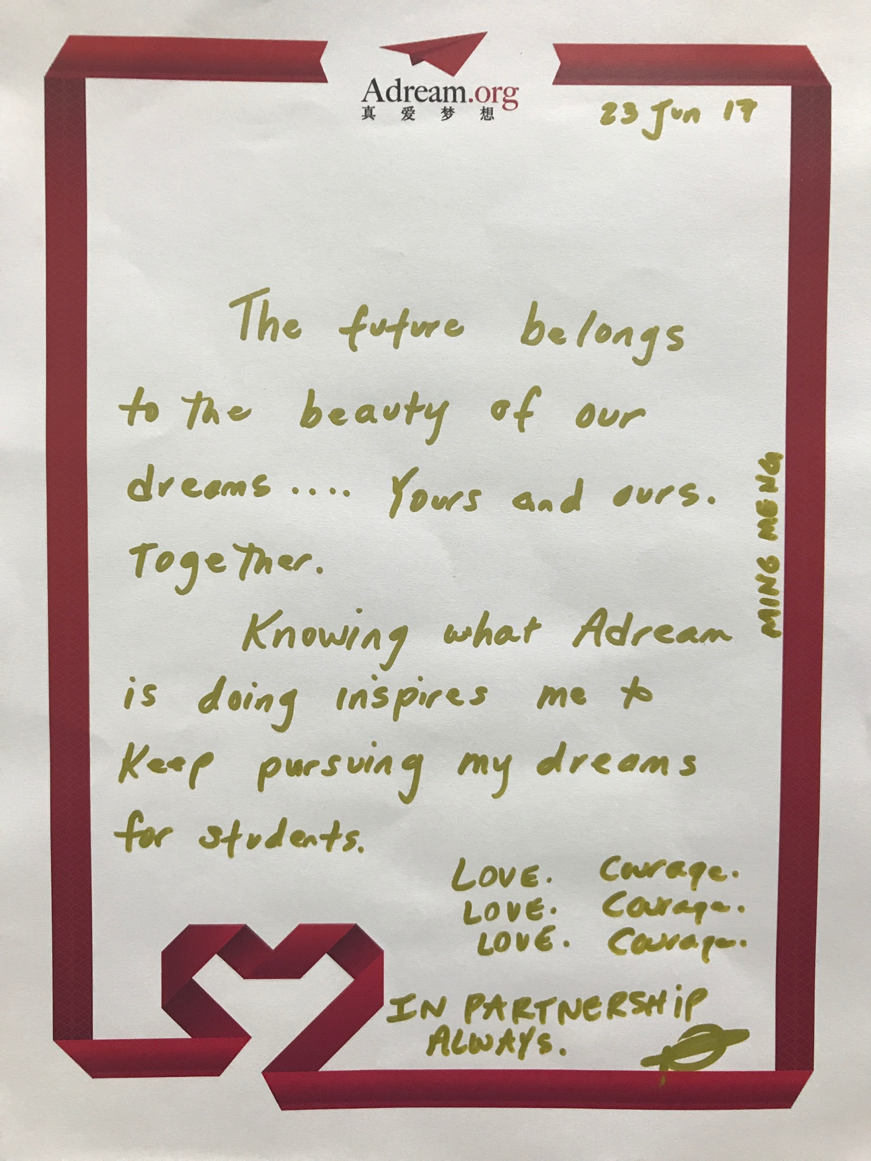 Adream.org
真爱梦想
23 Jun 17
The future belongs
to the beauty of our
dreams.... Yours and ours.
Together.
Knowing what Adream
is doing inspires me to
keep pursuing my dreams
for students.
LOVE. Courage.
LOVE. Courage.
LOVE. Courage.
IN PARTNERSHIP
ALWAYS.
MING MENG